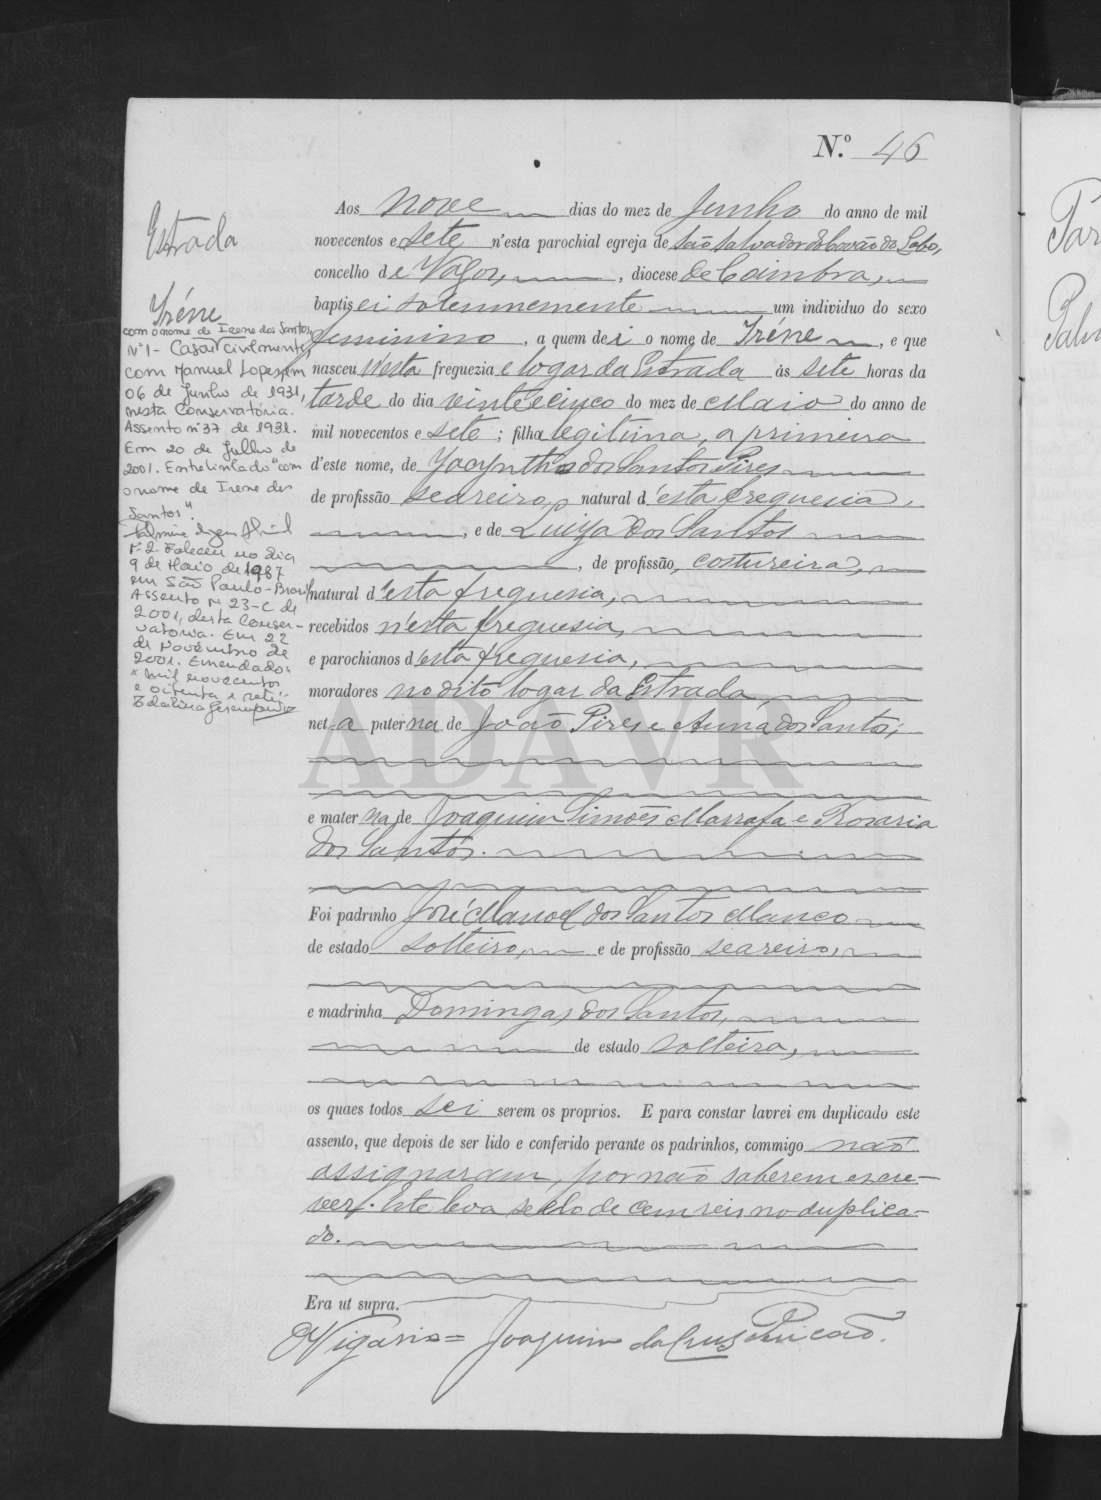 N.º 46
Estrada
Iréne
com o nome de Irene dos Santos
Nº1- Casou civilmente,
com Manuel Lopes, em
06 de Junho de 1931,
nesta Conservatória.
Assento nº 37 de 1931.
Em 20 de Julho de
2001. Entrelinhado "com
o nome de Irene dos
Santos".
Nº 2. Faleceu no dia
9 de Maio de 1987
em São Paulo - Brasil
Assento nº 23-C de
2001, desta Conser-
vatória. Em 22
de Novembro de
2001. Emendado:
"mil novecentos
e oitenta e sete".
Aos nove dias do mez de Junho do anno de mil
novecentos e sete n'esta parochial egreja de São Salvador do Covão do Lobo,
concelho de Vagos, , diocese de Coimbra,
baptisei solemnemente um individuo do sexo
feminino , a quem dei o nome de Iréne , e que
nasceu n'esta freguezia e logar da Estrada ás sete horas da
tarde do dia vinte e cinco do mez de Maio do anno de
mil novecentos e sete ; filha legitima, a primeira
d'este nome, de Jacyntho dos Santos Pires
de profissão seareiro, natural d'esta freguesia,
, e de Luiza dos Santos
, de profissão costureira,
natural d'esta freguesia,
recebidos n'esta freguesia,
e parochianos d'esta freguesia,
moradores no dito logar da Estrada,
neta paterna de João Pires e Anna dos Santos;
ADAVR
e materna de Joaquim Simões Marrafa e Rosaria
dos Santos.
Foi padrinho José Manoel dos Santos Manco
de estado solteiro, e de profissão seareiro,
e madrinha Domingas dos Santos,
de estado solteira,
os quaes todos sei serem os proprios. E para constar lavrei em duplicado este
assento, que depois de ser lido e conferido perante os padrinhos, commigo não
assignaram, por não saberem escre-
ver. Este leva sello de cem reis no duplica-
do.
Era ut supra.
O Vigario = Joaquim da Cruz